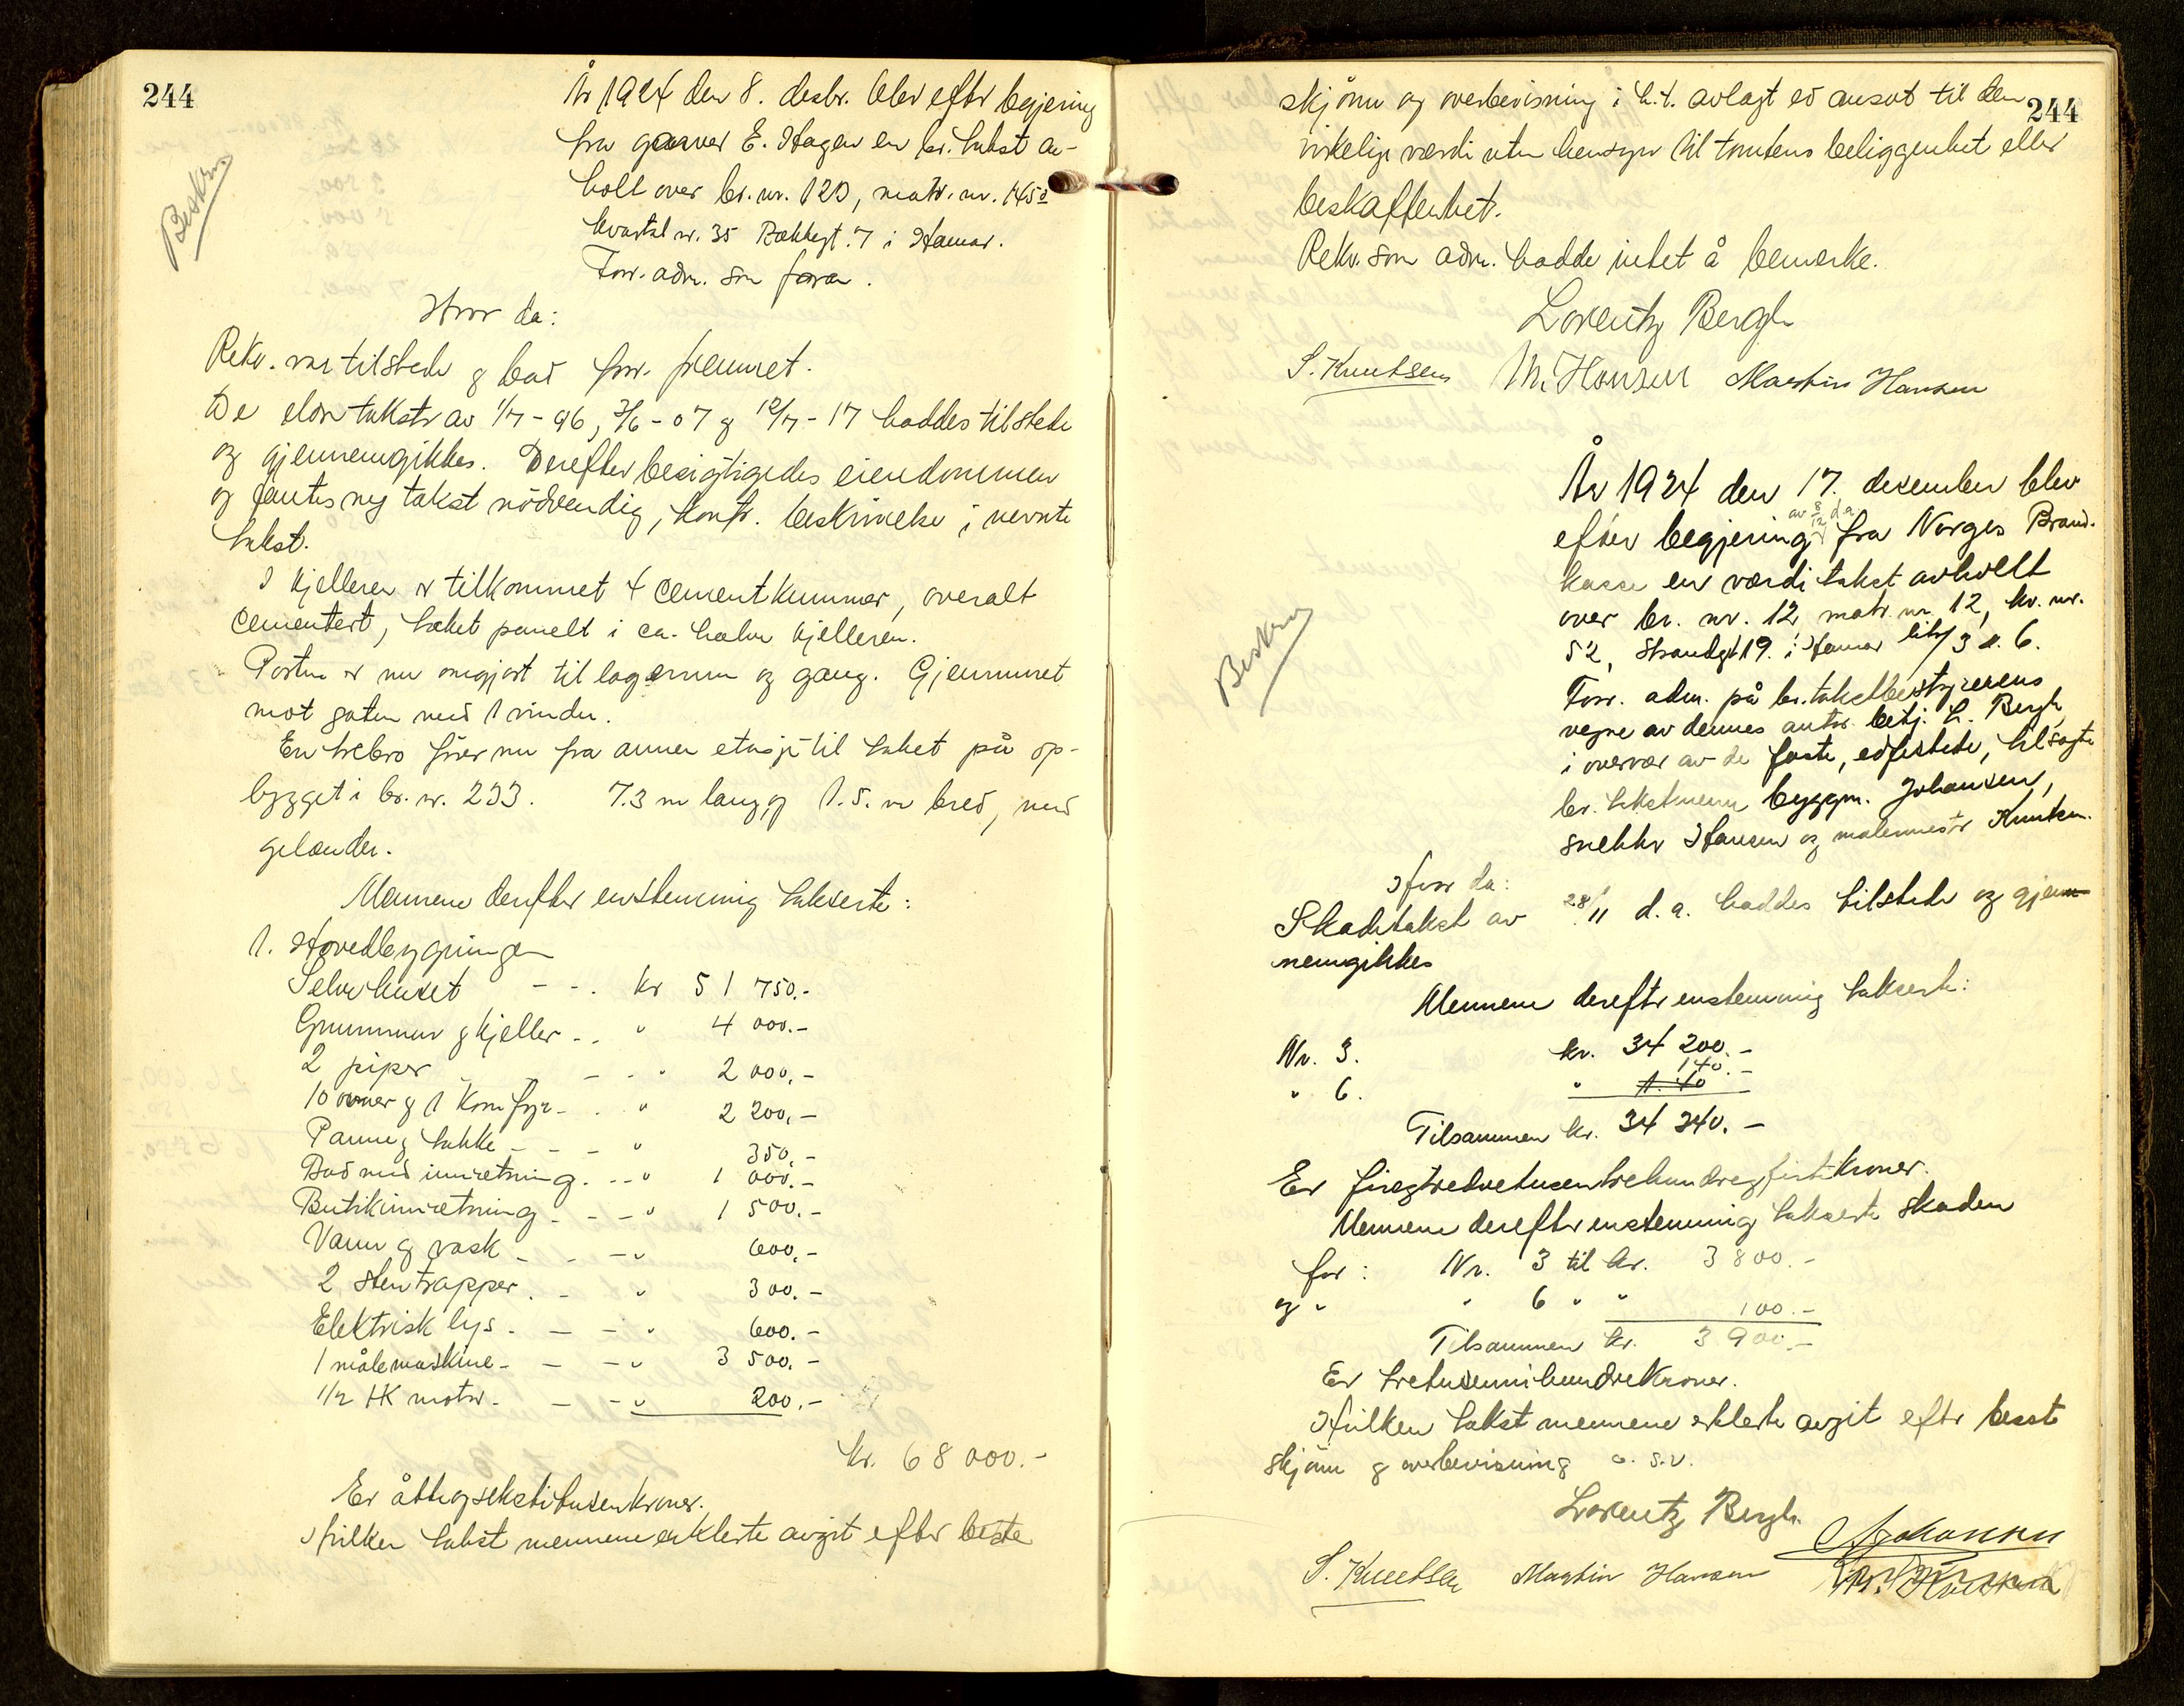 244
År 1924 den 8. desbr. blev efter begjering
fra garver E. Hagen en br. takst av-
holt over br. nr. 120, matr. nr. 145
kvartal nr. 35 Bækkegt. 7 i Hamar.
Forr. adm. som foran.
Beskrev
Hvor da:
Rekv. var tilstede og bad forr. fremmet.
De eldre takster av 1/7-96, 7/6-07 og 12/7-17 haddes tilstede
og gjennemgikkes. Derefter besigtigedes eiendommen
og fantes ny takst nödvendig, konfr. beskrivelse i nevnte
takst.
I kjelleren er tilkommet 4 cementkummer, overalt
cementert, taket panelt i ca. halve kjelleren.
Porten er nu omgjort til lagerrum og gang. Gjenmuret
mot gaten med 1 vindu.
En trebro förer nu fra annen etasje til taket på op-
bygget i br. nr. 233. 7.3 m lang og 1.5. m bred, med
gelænder.
Mennene derefter enstemmig takserte:
1. Hovedbygningen
Selve huset - - . kr 51 750.-
Grunnmur og kjeller - . " 4 000.-
2 piper - - . " 2 000.-
10 ovner og 1 Komfyr - . " 2 200.-
Panne og takke - - - " 350.-
Bad med innretning. - - " 1 000.-
Butikinnretning - - - " 1 500.-
Vann og vask - - - " 600.-
2 stentrapper. - " 300.-
Elektrisk lys. - - " 600.-
1 målemaskine - - - " 3 500.-
1/2 HK motor. - - " 200.-
kr. 68 000.-
Er åtteogsekstitusen kroner.
Hvilken takst mennene erklerte avgit efter beste
244
skjönn og overbevisning i h.t. avlagt ed ansat til den
virkelige værdi uten hensyn til tomtens beliggenhet eller
beskaffenhet.
Rekv. som adm. hadde intet å bemerke.
Lorentz Bergh
S. Knutsen M. Hansen Martin Hansen
År 1924 den 17. desember blev
av 8/12 d.a.
efter begjering fra Norges Brand-
kasse en værdi takst avholt
over br. nr. 12, matr. nr. 12, kv. nr.
52, Strandgt 19. i Hamar litr 3 &. 6.
Forr. adm. på br. takstbestyrerens
vegne av dennes autor. betj. L. Bergh
i overvær av de faste, edfestede, tilsagte
br. takstmenn byggm. Johansen,
snekker Hansen og malermester Knutsen.
Beskrev
Hvor da:
Skadetakst av 28/11 d.a. haddes tilstede og gjen-
nemgikkes
Mennene derefter enstemmig takserte:
Nr. 3. kr. 34 200.-
" 6. " 140.-
Tilsammen kr. 34 340.-
Er fireogtredvetusentrehundreogfirtikroner.
Mennene derefter enstemmig takserte skaden
for: Nr. 3 til kr. 3 800.-
og " " 6 " " 100.-
Tilsammen kr. 3 900.-
Er tretusennihundrekroner.
Hvilken takst mennene erklerte avgit efter beste
skjönn og overbevisning o.s.v.
Lorentz Bergh
Johansen
S. Knutsen Martin Hansen